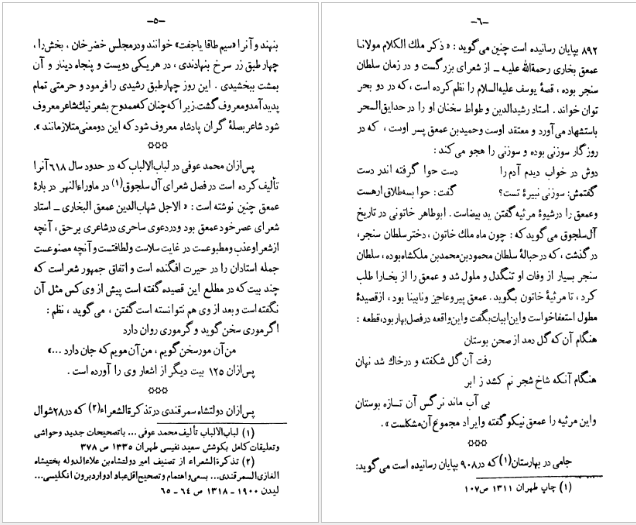 -۵-
بنهند و آنرا «سیم طاقا یا جفت» خوانند و در مجلس خضر خان ، بخش را ،
چهار طبق زر سرخ بنهادندی ، در هر یکی دویست و پنجاه دینار و آن
بمشت ببخشیدی . این روز چهار طبق رشیدی را فرمود و حرمتی تمام
پدید آمد و معروف گشت، زیرا که چنان که ممدوح بشعر نیک شاعر معروف
شود شاعر بصلهٔ گران پادشاه معروف شود که این دو معنی متلازمانند».
***
پس از ان محمد عوفی در لباب الالباب که در حدود سال ۶۱۸ آنرا
تألیف کرده است در فصل شعرای آل سلجوق(۱) در ماوراء النهر در بارهٔ
عمعق چنین نوشته است : «الاجل شهاب الدین عمعق البخاری – استاد
شعرای عصر خود عمعق بود و در دعوی ساحری در شاعری بر حق ، آنچه
از شعر او عذب و مطبوعست در غایت سلاست و لطافتست و آنچه مصنوعست
جمله استادان را در حیرت افگنده است و اتفاق جمهور شعراست که
چند بیت که در مطلع این قصیده گفته است پیش از وی کس مثل آن
نگفته است و بعد از وی هم نتوانسته است گفتن ، می گوید ، نظم :
اگر موری سخن گوید و گر موری روان دارد
من آن مور سخن گویم ، من آن مویم که جان دارد ...»
پس از ان ۱۲۵ بیت دیگر از اشعار وی را آورده است .
***
پس از ان دولتشاه سمرقندی در تذکرة الشعراء(۲) که در ۲۸ شوال
(۱) لباب الالباب تألیف محمد عوفی ... با تصحیحات جدید و حواشی
و تعلیقات کامل بکوشش سعید نفیسی طهران ۱۳۳۵ ص ۳۷۸
(۲) تذکرة الشعراء از تصنیف امیر دولتشاه بن علاء الدوله بختیشاه
الغازی السمرقندی... بسعی و اهتمام و تصحیح اقل عباد ادوارد برون انگلیسی...
لیدن ۱۹۰۰ – ۱۳۱۸ ص ۶۴ – ۶۵
-۶-
۸۹۲ بپایان رسانیده است چنین می گوید : «ذکر ملک الکلام مولانا
عمعق بخاری رحمة الله علیه – از شعرای بزرگست و در زمان سلطان
سنجر بوده ، قصهٔ یوسف علیه السلام را نظم کرده است ، که در دو بحر
توان خواند . استاد رشید الدین وطواط سخنان او را در حدایق السحر
باستشهاد می آورد و معتقد اوست و حمید بن عمعق پسر اوست ، که در
روزگار سوزنی بوده و سوزنی را هجو می کند :
دوش در خواب دیدم آدم را دست حوا گرفته اندر دست
گفتمش: سوزنی نبیرهٔ تست؟ گفت: حوا بسه طلاق ار هست
و عمعق را در شیوهٔ مرثیه گفتن ید بیضاست . ابوطاهر خاتونی در تاریخ
آل سلجوق می گوید که : چون ماه ملک خاتون ، دختر سلطان سنجر ،
در گذشت ، که در حبالهٔ سلطان محمود بن محمد بن ملکشاه بوده ، سلطان
سنجر بسیار از وفات او تنگدل و ملول شد و عمعق را از بخارا طلب
کرد ، تا مرثیهٔ خاتون بگوید . عمعق پیر و عاجز و نابینا بود ، از قصیدهٔ
مطول استعفا خواست و این ابیات بگفت و این واقعه در فصل بهار بود، قطعه :
هنگام آن که گل دمد از صحن بوستان
رفت آن گل شکفته و در خاک شد نهان
هنگام آنکه شاخ شجر نم کشد ز ابر
بی آب ماند نرگس آن تازه بوستان
و این مرثیه را عمعق نیکو گفته و ایراد مجموع آن مشکلست» .
***
جامی در بهارستان(۱) که در ۹۰۸ بپایان رسانیده است می گوید:
(۱) چاپ طهران ۱۳۱۱ ص ۱۰۷